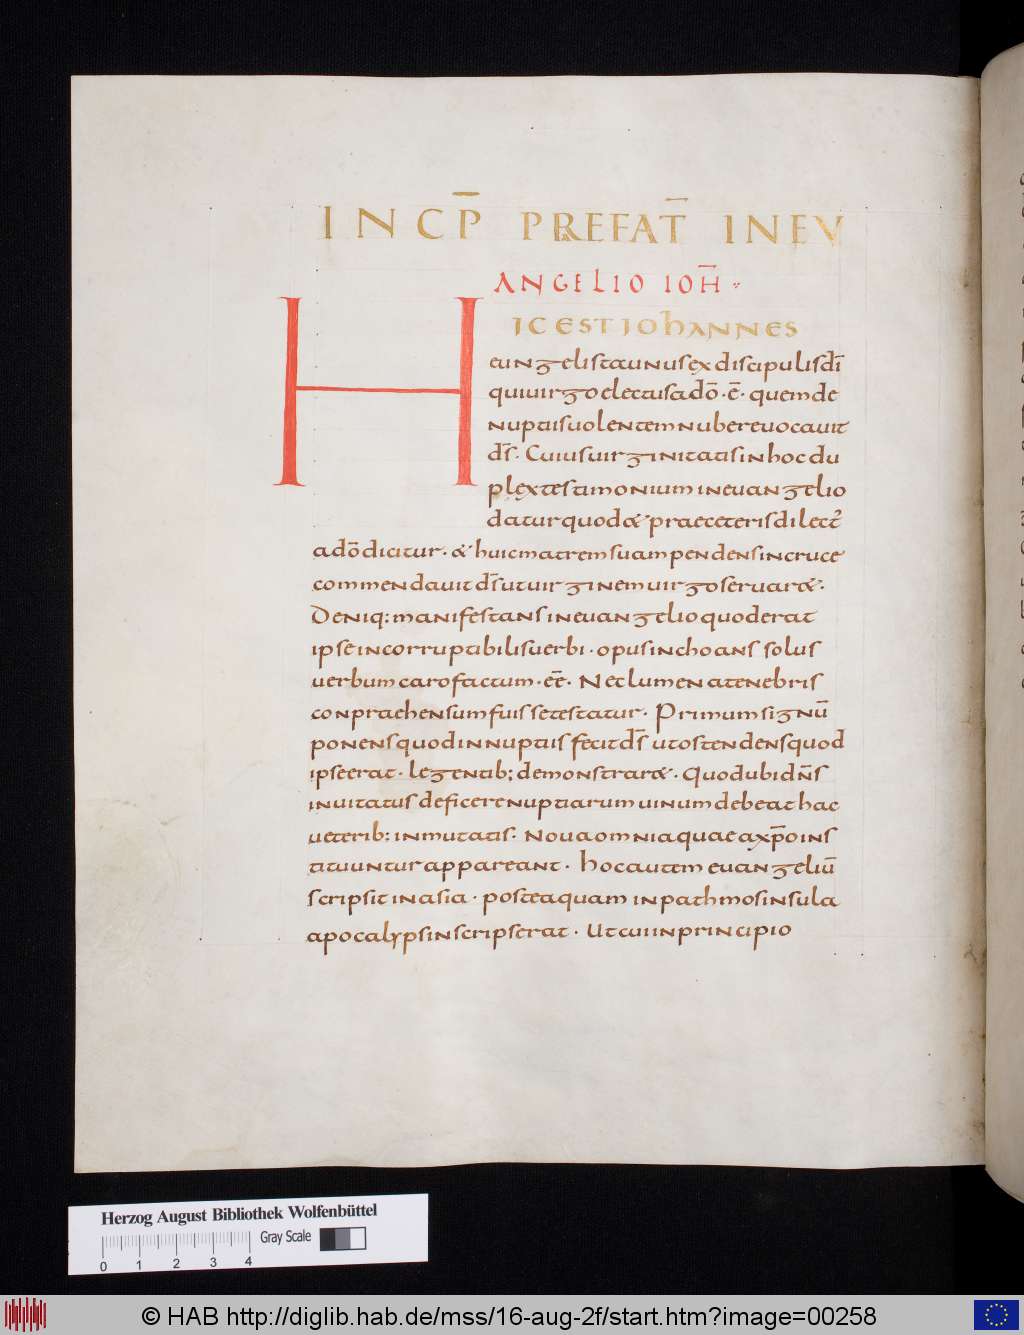 INCP̄ PREFAT̄ IN EV
ANGELIO IOH̄
HIC EST IOHANNES
euangelista unus ex discipulis dī
qui uirgo electus a dō · ē · quem de
nuptiis uolentem nubere uocauit
ds̄. Cuius uirginitatis in hoc du
plex testimonium in euangelio
datur quod & praeceteris dilect᾽
a dō dicitur · & huic matrem suam pendens in cruce
commendauit ds̄ ut uirginem uirgo seruar& ·
Deniq; manifestans in euangelio quod erat
ipse incorruptibilis uerbi · opus inchoans solus
uerbum caro factum · eē · Nec lumen a tenebris
conpraehensum fuisse testatur · Primum signū
ponens quod in nuptiis fecit ds̄ ut ostendens quod
ipse erat · legentib; demonstrar& · Quod ubi dn̄s
inuitatus deficere nuptiarum uinum debeat hac
ueterib; inmutatis · Noua omnia quae a xp̄o ins
tituuntur appareant · hoc autem euangeliū
scripsit in asia · posteaquam in pathmos insula
apocalypsin scripserat · Ut cui in principio
Herzog August Bibliothek Wolfenbüttel
Gray Scale
0 1 2 3 4
© HAB http://diglib.hab.de/mss/16-aug-2f/start.htm?image=00258